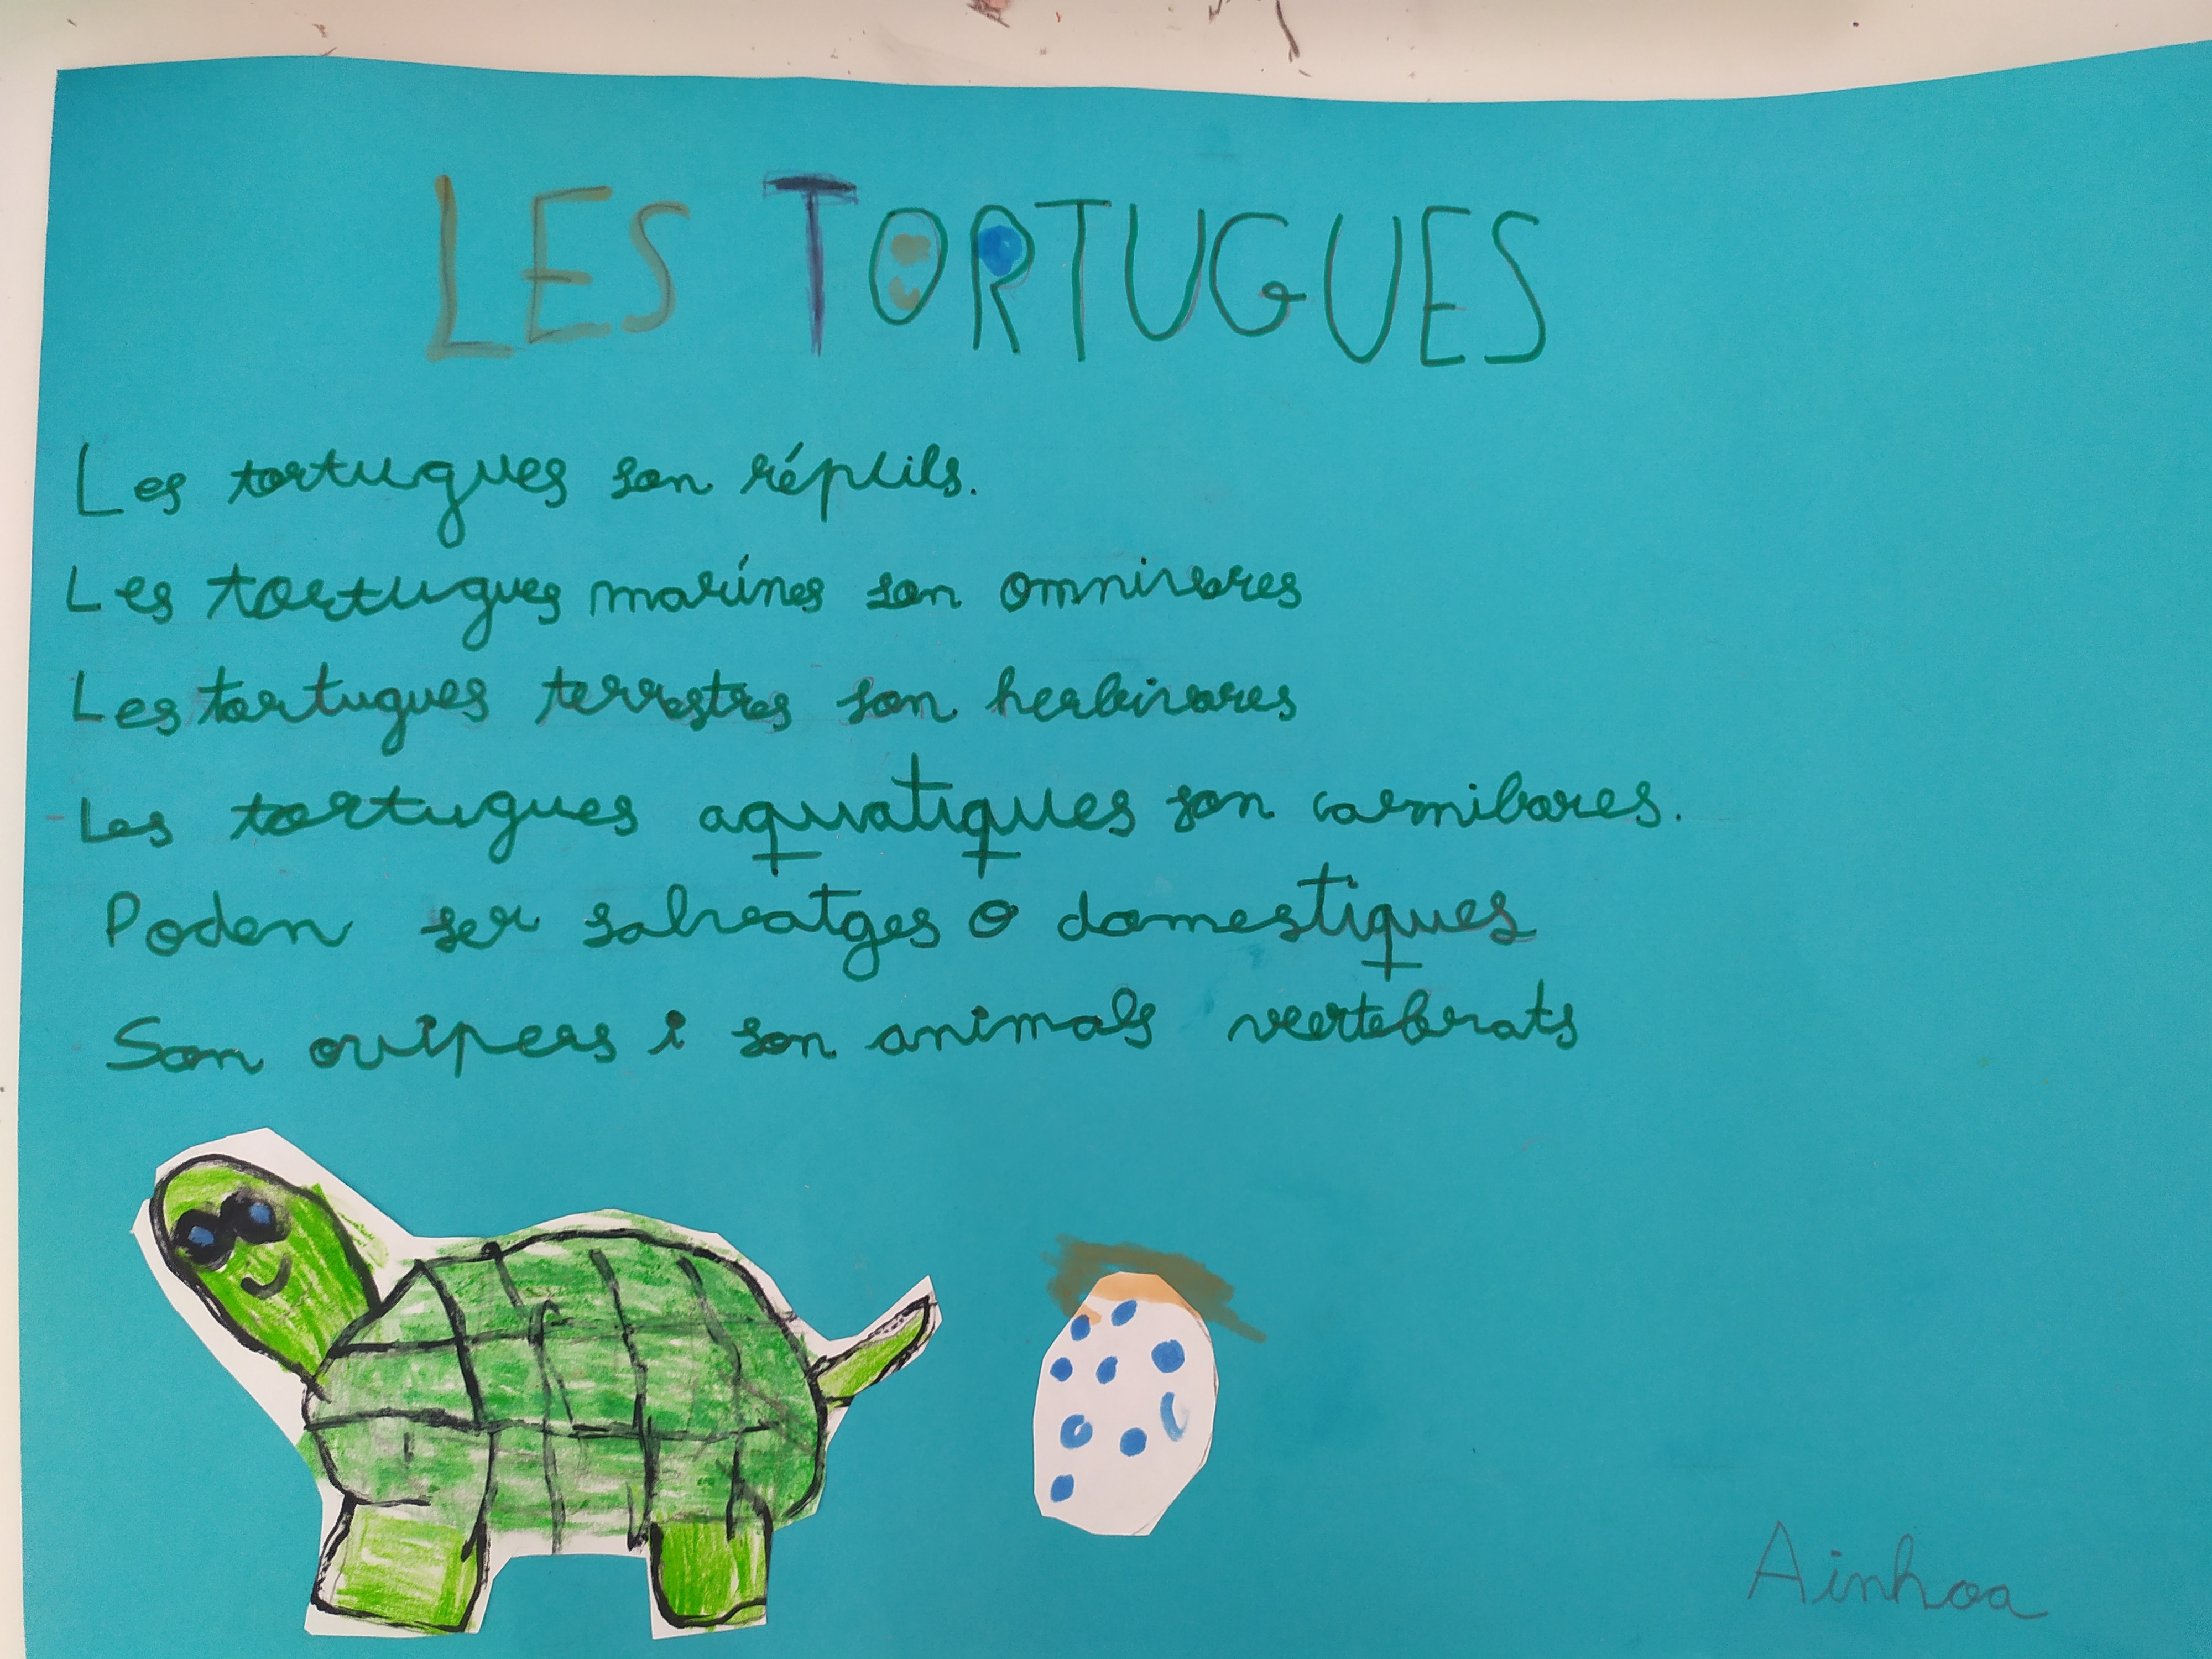 LES TORTUGUES
Les tortugues son réptils.
Les tortugues marínes son omnivores
Les tortugues terrestres son herbivores
Les tortugues aquatiques son carnibores.
Poden ser salvatges o domestiques
Son ovipers i son animals vertebrats
Ainhoa